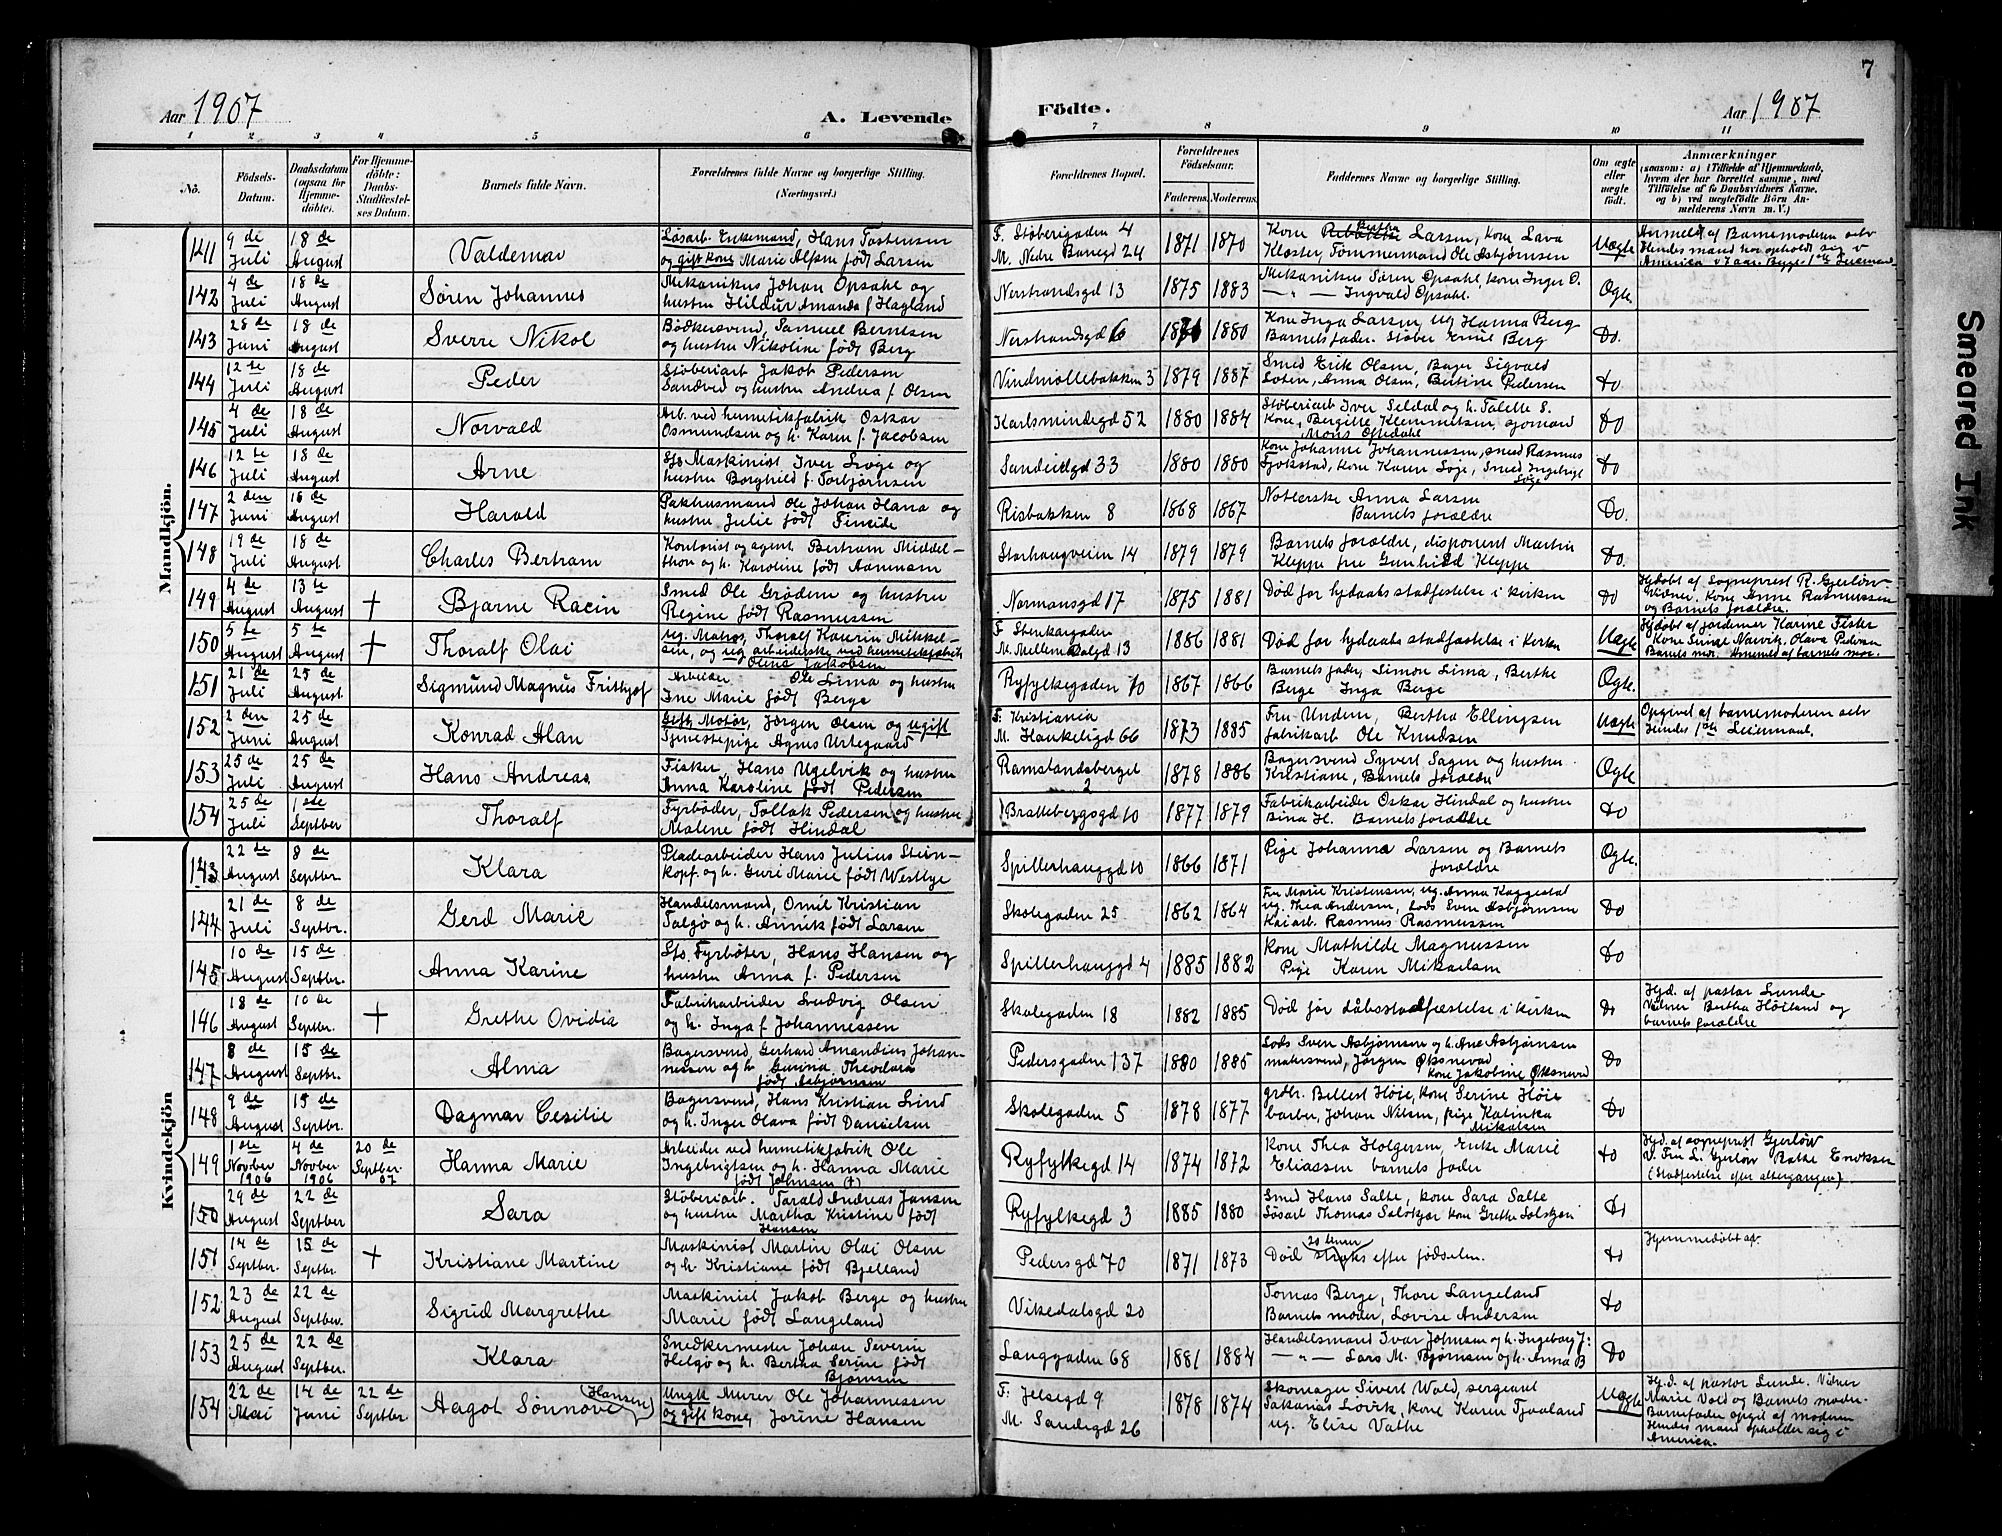 7
Aar 1907
A. Levende
Födte.
Aar 1907
1 2 3 4 5 6 7 8 9 10 11
No.
Födsels-Datum.
Daabsdatum (ogsaa for Hjemme-döbte).
For Hjemme-döbte: Daabs-Stadfæstel-ses Datum.
Barnets fulde Navn.
Forældrenes fulde Navne og borgerlige Stilling. (Næringsvei.)
Forældrenes Bopæl.
Forældrenes Födselsaar.
Faderens. Moderens.
Faddernes Navne og borgerlige Stilling.
Om ægte eller uægte födt.
Anmærkninger (saasom: a) i Tilfælde af Hjemmedaab, hvem der har forrettet samme, med Tilföielse af to Daabsvidners Navne, og b) ved uægtefödte Börn An-melderens Navn m. V.)
Mandkjön.
141 9de Juli 18de August Valdemar Løsarb. Enkemand, Hans Tostensen og gift kone Marie født Larsen F. Støberigaden 4 M. Nedre Banegd 24 1871 1870 Kone Berthe Larsen, kone Lava Kloster, Tømmermand Ole Asbjørnsen Uægte Anmeldt af Barnemoderen selv Hendes mand har opholdt sig i America
142 4de Juli 18de August Søren Johannes Mekanikus Johan Opsahl og hustru Hildur Amanda f Hagland Nerstrandsgd 13 1875 1883 Mekanikus Søren Opsahl, kone Inger O. —„— Ingvald Opsahl. Ægte
143 28de Juni 18de August Sverre Nikol Bødkersvend, Samuel Berntsen og hustru Nikoline født Berg Nerstrandsgd 6 1880 Kone Inga Larsen, ug Hanna Berg Barnets fader. Støber Berg Do.
144 12te Juli 18de August Peder Støberiarb Jakob Pedersen Sandved og hustru Andrea f. Olsen Vindmøllebakken 3 1879 1887 Smed Erik Olsen, Bager Sigvald Anna Olsen, Bertine Pedersen do
145 4de Juli 18de August Norvald Arb. ved hermetikfabrik Oskar Osmundsen og h. Karen f. Jacobsen Karlsmindegd 52 1880 1884 Støberiarb Iver Seldal og h. Talette S. Kone, Bergitte Klemmetsen, sjømand Mons Oftedahl Do
146 12te Juli 18de August Arne Maskinist Iver Soge og hustru Borghild f. Torbjørnsen Sandeidgd 33 1880 1880 Kone Johanne Johannessen, smed Rasmus kone Karen Soge, Smed Ingebrigt Soge Do
147 2den Juni 18de August Harald Pakhusmand Ole Johan Hana og hustru Julie født Risbakken 8 1868 1867 Anna Larsen Barnets forældre Do.
148 19de Juli 18de August Charles Bertram Kontorist og agent Bertram Middel-thon og h. Karoline født Aanensen Storhaugveien 14 1879 1879 Barnets forældre, disponent Martin Kleppe fru Gunhild Kleppe Do.
149 4de August 13te August + Bjarne Racin Smed Ole Grødem og hustru Regine født Rasmussen Normansgd 17 1875 1881 Død før hjdaabs stadfestelse i kirken Do Hjdøbt af sogneprest R. Gjerløw Vidner, Kone Anne Rasmussen og Barnets forældre.
150 5te August 5te August + Thoralf Olai ug. Matros, Thoralf Kaurin Mikkel-sen, og ug arbeiderske ved hermetikfabrik Olene Jakobsen F Stenkargaden M. Mellem Dalgd 13 1886 1881 Død før hjdaabs stadfæstelse i kirken Uægte Hjdøbt af jordemor Karine Fister Kone Narvik, Olava Pedersen Barnets mor. Anmeldt af barnets mor.
151 21de Juli 25de August Sigmund Magnus Frithjof Arbeider Ole Lima og hustru Ine Marie født Berge Ryfylkegaden 70 1867 1866 Barnets fader, Simon Lima, Berthe Berge Inga Berge Ægte.
152 2den Juni 25de August Konrad Alan Gift Matør, Jørgen Olsen og ugift Tjenestepige Agnes Urtegaard F. Kristiania M. Haukeligd 66 1873 1885 Fru Undem, Bertha Ellingsen fabrikarb Ole Knudsen Uægte Opgivet af barnemoderen selv Hendes 1ste Leiermaal.
153 25de Juli 25de August Hans Andreas Fisker, Hans Ugelvik og hustru Anna Karoline født Pedersen Ramslandsberget 2 1878 1886 Bagersvend Syvert Sagen og hustru Kristiane, Barnets forældre Ægte
154 25de Juli 1ste Septber Thoralf Fyrbøder, Tollak Pedersen og hustru Malene født Hindal Brattebergsgd 10 1877 1879 Fabrikarbeider Oskar Hindal og hustru Bina H. Barnets forældre do
Kvindekjön
143 22de August 8de Septber. Klara Pladearbeider Hans Julius Stein-kopf og h. Guri Marie født Westbye Spilderhauggd 10 1866 1871 Pige Johanna Larsen og Barnets forældre Ægte.
144 21de Juli 8de Septbr. Gerd Marie Handelsmand, Omil Kristian Talgø og h. Annik født Larsen Skolegaden 25 1862 1864 Fru Marie Kristensen, ug. Anna Kaggestad ug. Thea Andersen, Lods Sven Asbjørnsen Kaiarb. Rasmus Rasmussen Do
145 10de August 15de Septbr. Anna Karine Sts. Fyrbøter, Hans Hansen og hustru Anna f. Pedersen Spilderhauggd 4 1885 1882 Kone Mathilde Magnussen Pige Karen Mikaelsen Do
146 18de August 10de Septbr. + Grethe Ovidia Fabrikarbeider Ludvig Olsen og h. Inga f Johannessen Skolegaden 18 1882 1885 Død før dåbsstadfæstelse i kirken Do Hjd. af pastor Lunde Vidner Bertha Høiland og barnets forældre
147 8de August 15de Septbr. Alma Bagersvend, Gerhard Amandius Johan-nessen og h Gurina Theodora født Asbjørnsen Pedersgaden 137 1880 1885 Lods Sven Asbjørnsen og h. Ane Asbjørnsen malersvend, Jørgen Øksnevad kone Jakobine Øksnevad Do
148 9de August 15de Septbr. Dagmar Cesilie Bagersvend, Hans Kristian Lind og h. Inger Olava født Danielsen Skolegaden 5 1878 1877 Høie, kone Serine Høie barber, Johan Nilsen, pige Katinka Mikalsen Do
149 1ste Novber 1906 4de Novber 1906 20de Septber 07 Hanna Marie Arbeider ved hermetikfabrik Ole Ingebrigtsen og h. Hanna Marie født Johnsen (†) Ryfylkegd 14 1874 1872 Kone Thea Holgersen, Enke Marie Eliassen barnets fader do Hjd. af sogneprest Gjerløw V. Fru L. Gjerløw Eriksen (Stadfestelse efter altergangen).
150 29de August 22de Septber Sara Støberiarb. Tarald Andreas Jansen og hustru Martha Kristine født Hansen Ryfylkegd 3 1885 1880 Smed Hans Salte, kone Sara Salte Løsarb Thomas kone Grethe Do
151 14de Septber. 15de Septbr. + Kristiane Martine Maskinist Martin Olai Olsen og h. Kristiane født Bjelland Pedersgd 70 1871 1873 Død straks 20 timer efter fødselen. do Hjemmedøbt af
152 23de August 22de Septber. Sigrid Margrethe Maskinist Jakob Berge og hustru Marie født Langeland Vikedalsgd 20 Tomas Berge, Thore Langeland Barnets moder, Lovise Andersen do
153 25de August 22de Septber. Klara Snedkermester Johan Severin Helgø og h. Bertha Serine født Bjørnsen Langgaden 68 1881 1884 Handelsmand Ivar Johnsen og h. Ingeborg J: —„— Lars M. Bjørnsen og h. Anna B Do
154 22de Mai 14de Juni 22de Septber Aagot Sønnøve (Hansen) Ungk Murer Ole Johannessen og gift kone, Jorine Hansen F: Jelsegd 9 M. Sandegd 26 1878 1874 Skomager Sivert Wold, sergeant Sakarias Løvik, kone Karen Tjaaland ug. Elise Vathe Uægte Hjd. af pastor Lunde. Vidner Marie Vold og Barnets moder. Barnefader opgit af moderen Hendes mand opholder sig i America.
Smeared Ink